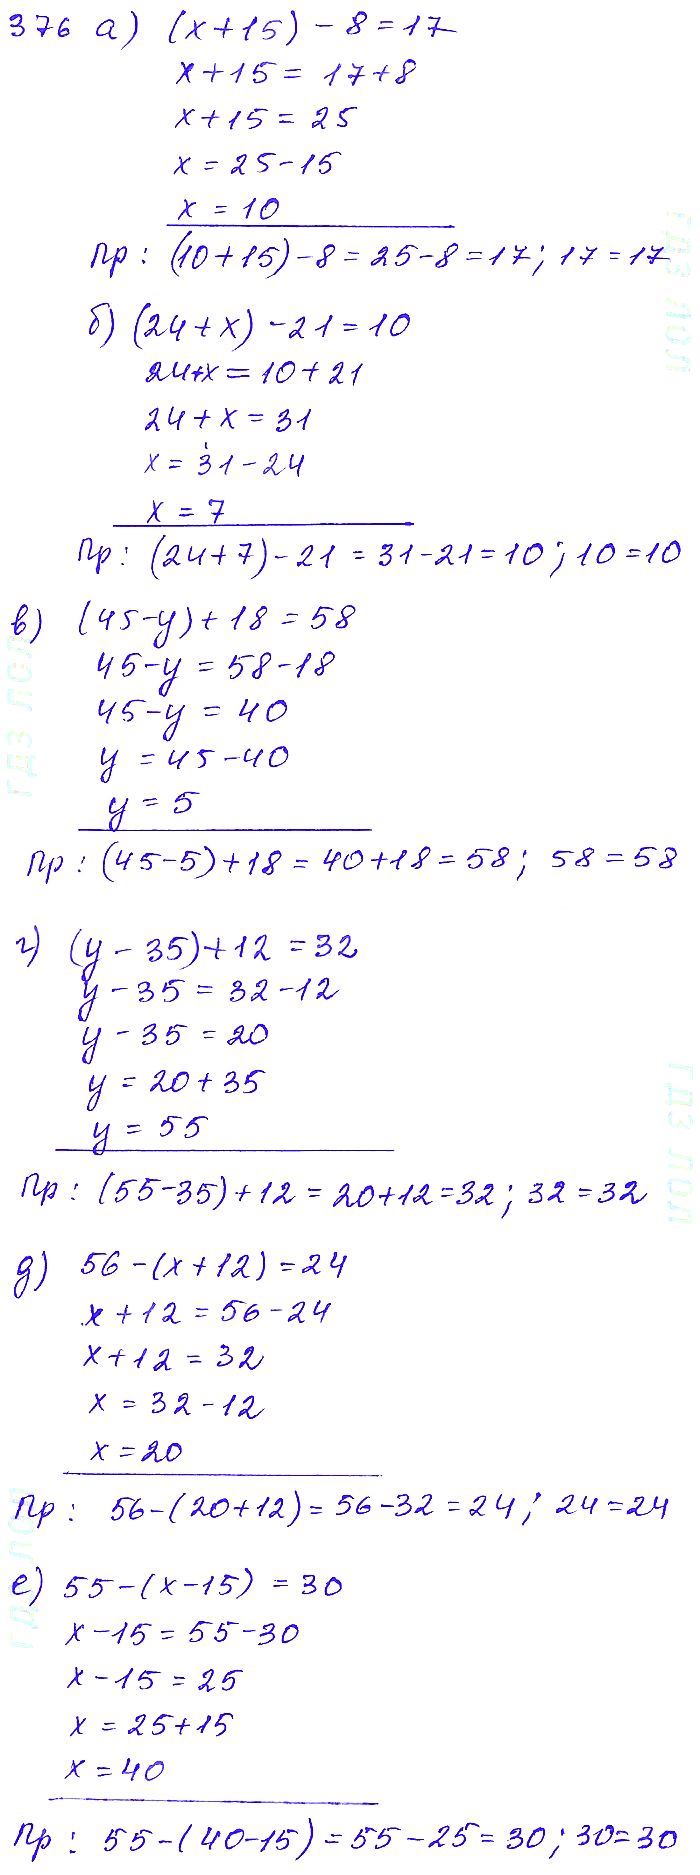 376 а) (x+15)-8=17
x+15= 17+8
x+15=25
x=25-15
x=10
Пр: (10+15)-8=25-8=17; 17=17
гдз лол
б) (24+x)-21=10
24+x=10+21
24+x=31
x=31-24
x=7
Пр: (24+7)-21=31-21=10; 10=10
в) (45-y)+18=58
45-y=58-18
45-y=40
y=45-40
y=5
гдз лол
Пр: (45-5)+18=40+18=58; 58=58
г) (y-35)+12=32
y-35=32-12
y-35=20
y=20+35
y=55
гдз лол
Пр: (55-35)+12=20+12=32; 32=32
д) 56-(x+12)=24
x+12=56-24
x+12=32
x=32-12
x=20
Пр: 56-(20+12)=56-32=24; 24=24
гдз лол
е) 55-(x-15)=30
x-15=55-30
x-15=25
x=25+15
x=40
Пр: 55-(40-15)=55-25=30; 30=30